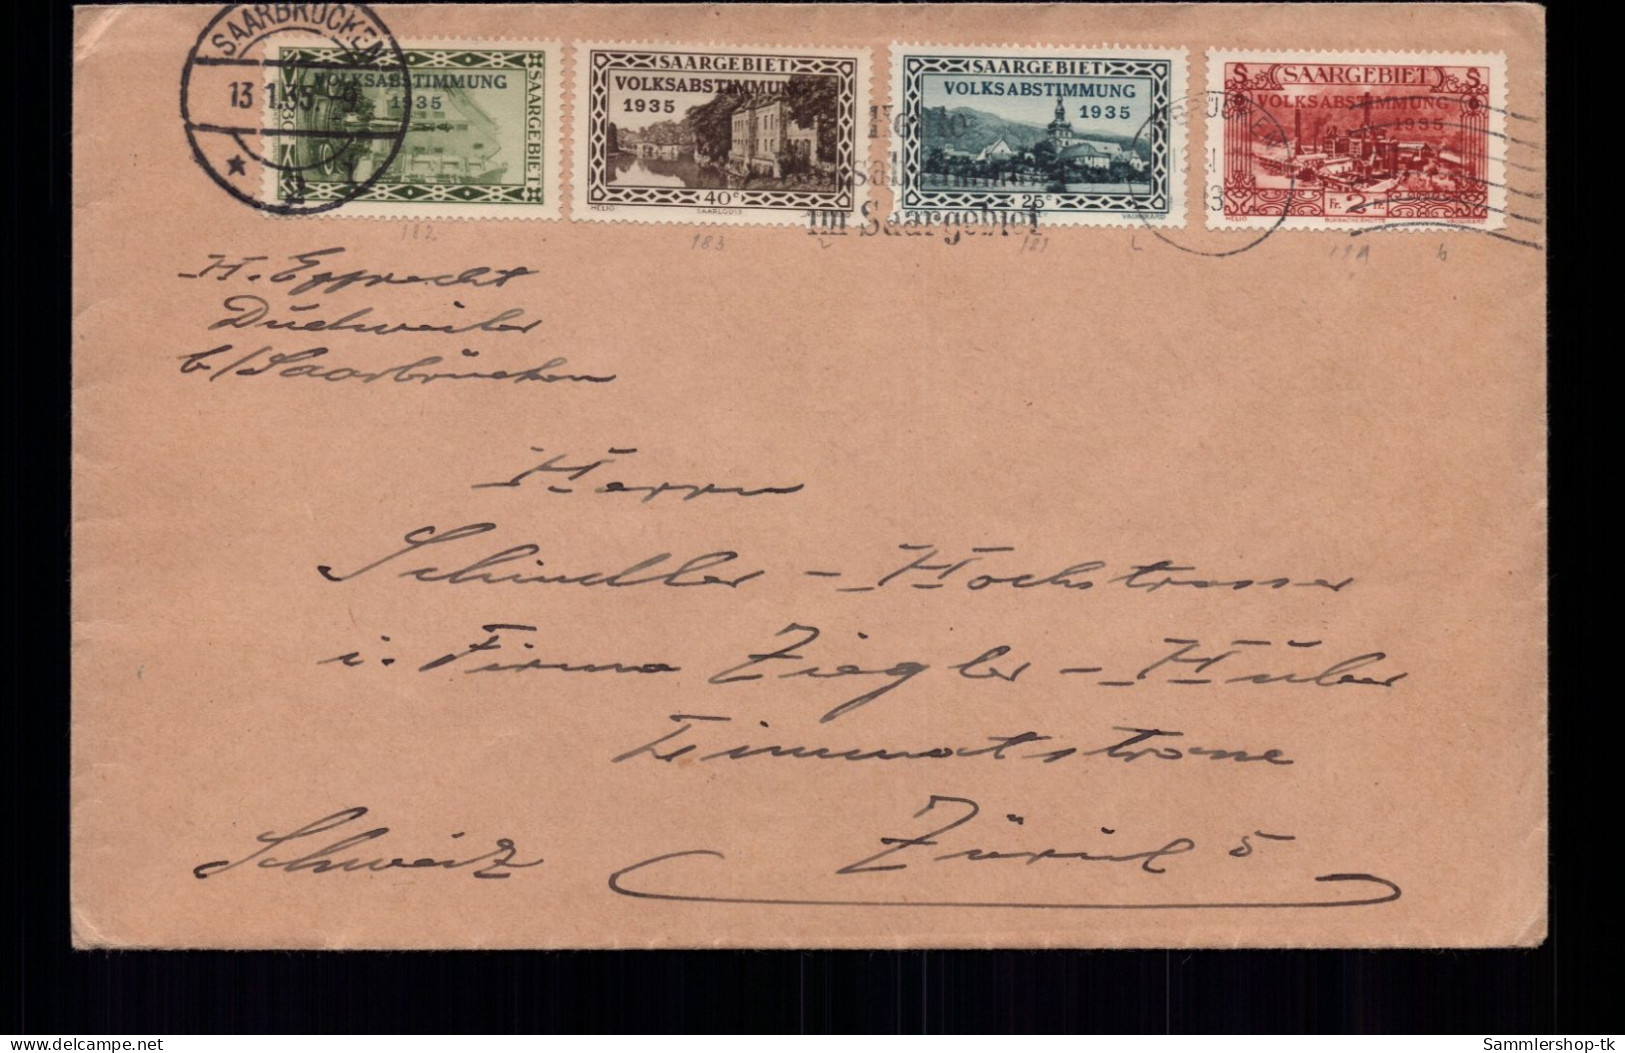 SAARBRÜCKEN
13.1.35. 9
SAARGEBIET
VOLKSABSTIMMUNG
1935
30
SAARGEBIET
VOLKSABSTIMMUNG
1935
40c
HELIO SAARLOUIS
SAARGEBIET
VOLKSABSTIMMUNG
1935
25c
VAUGIRARD
S SAARGEBIET S
VOLKSABSTIMMUNG
1935
Fr. 2 Fr.
HELIO BURBACHERHÜTTE VAUGIRARD
im Saargebiet
182 183 181
H. Epprecht
Dudweiler
b/Saarbrücken
Herrn
Schindler-Hochstrasser
i. Firma Ziegler-Huber
Limmatstrasse
Zürich 5
Schweiz
Sammlershop-tk